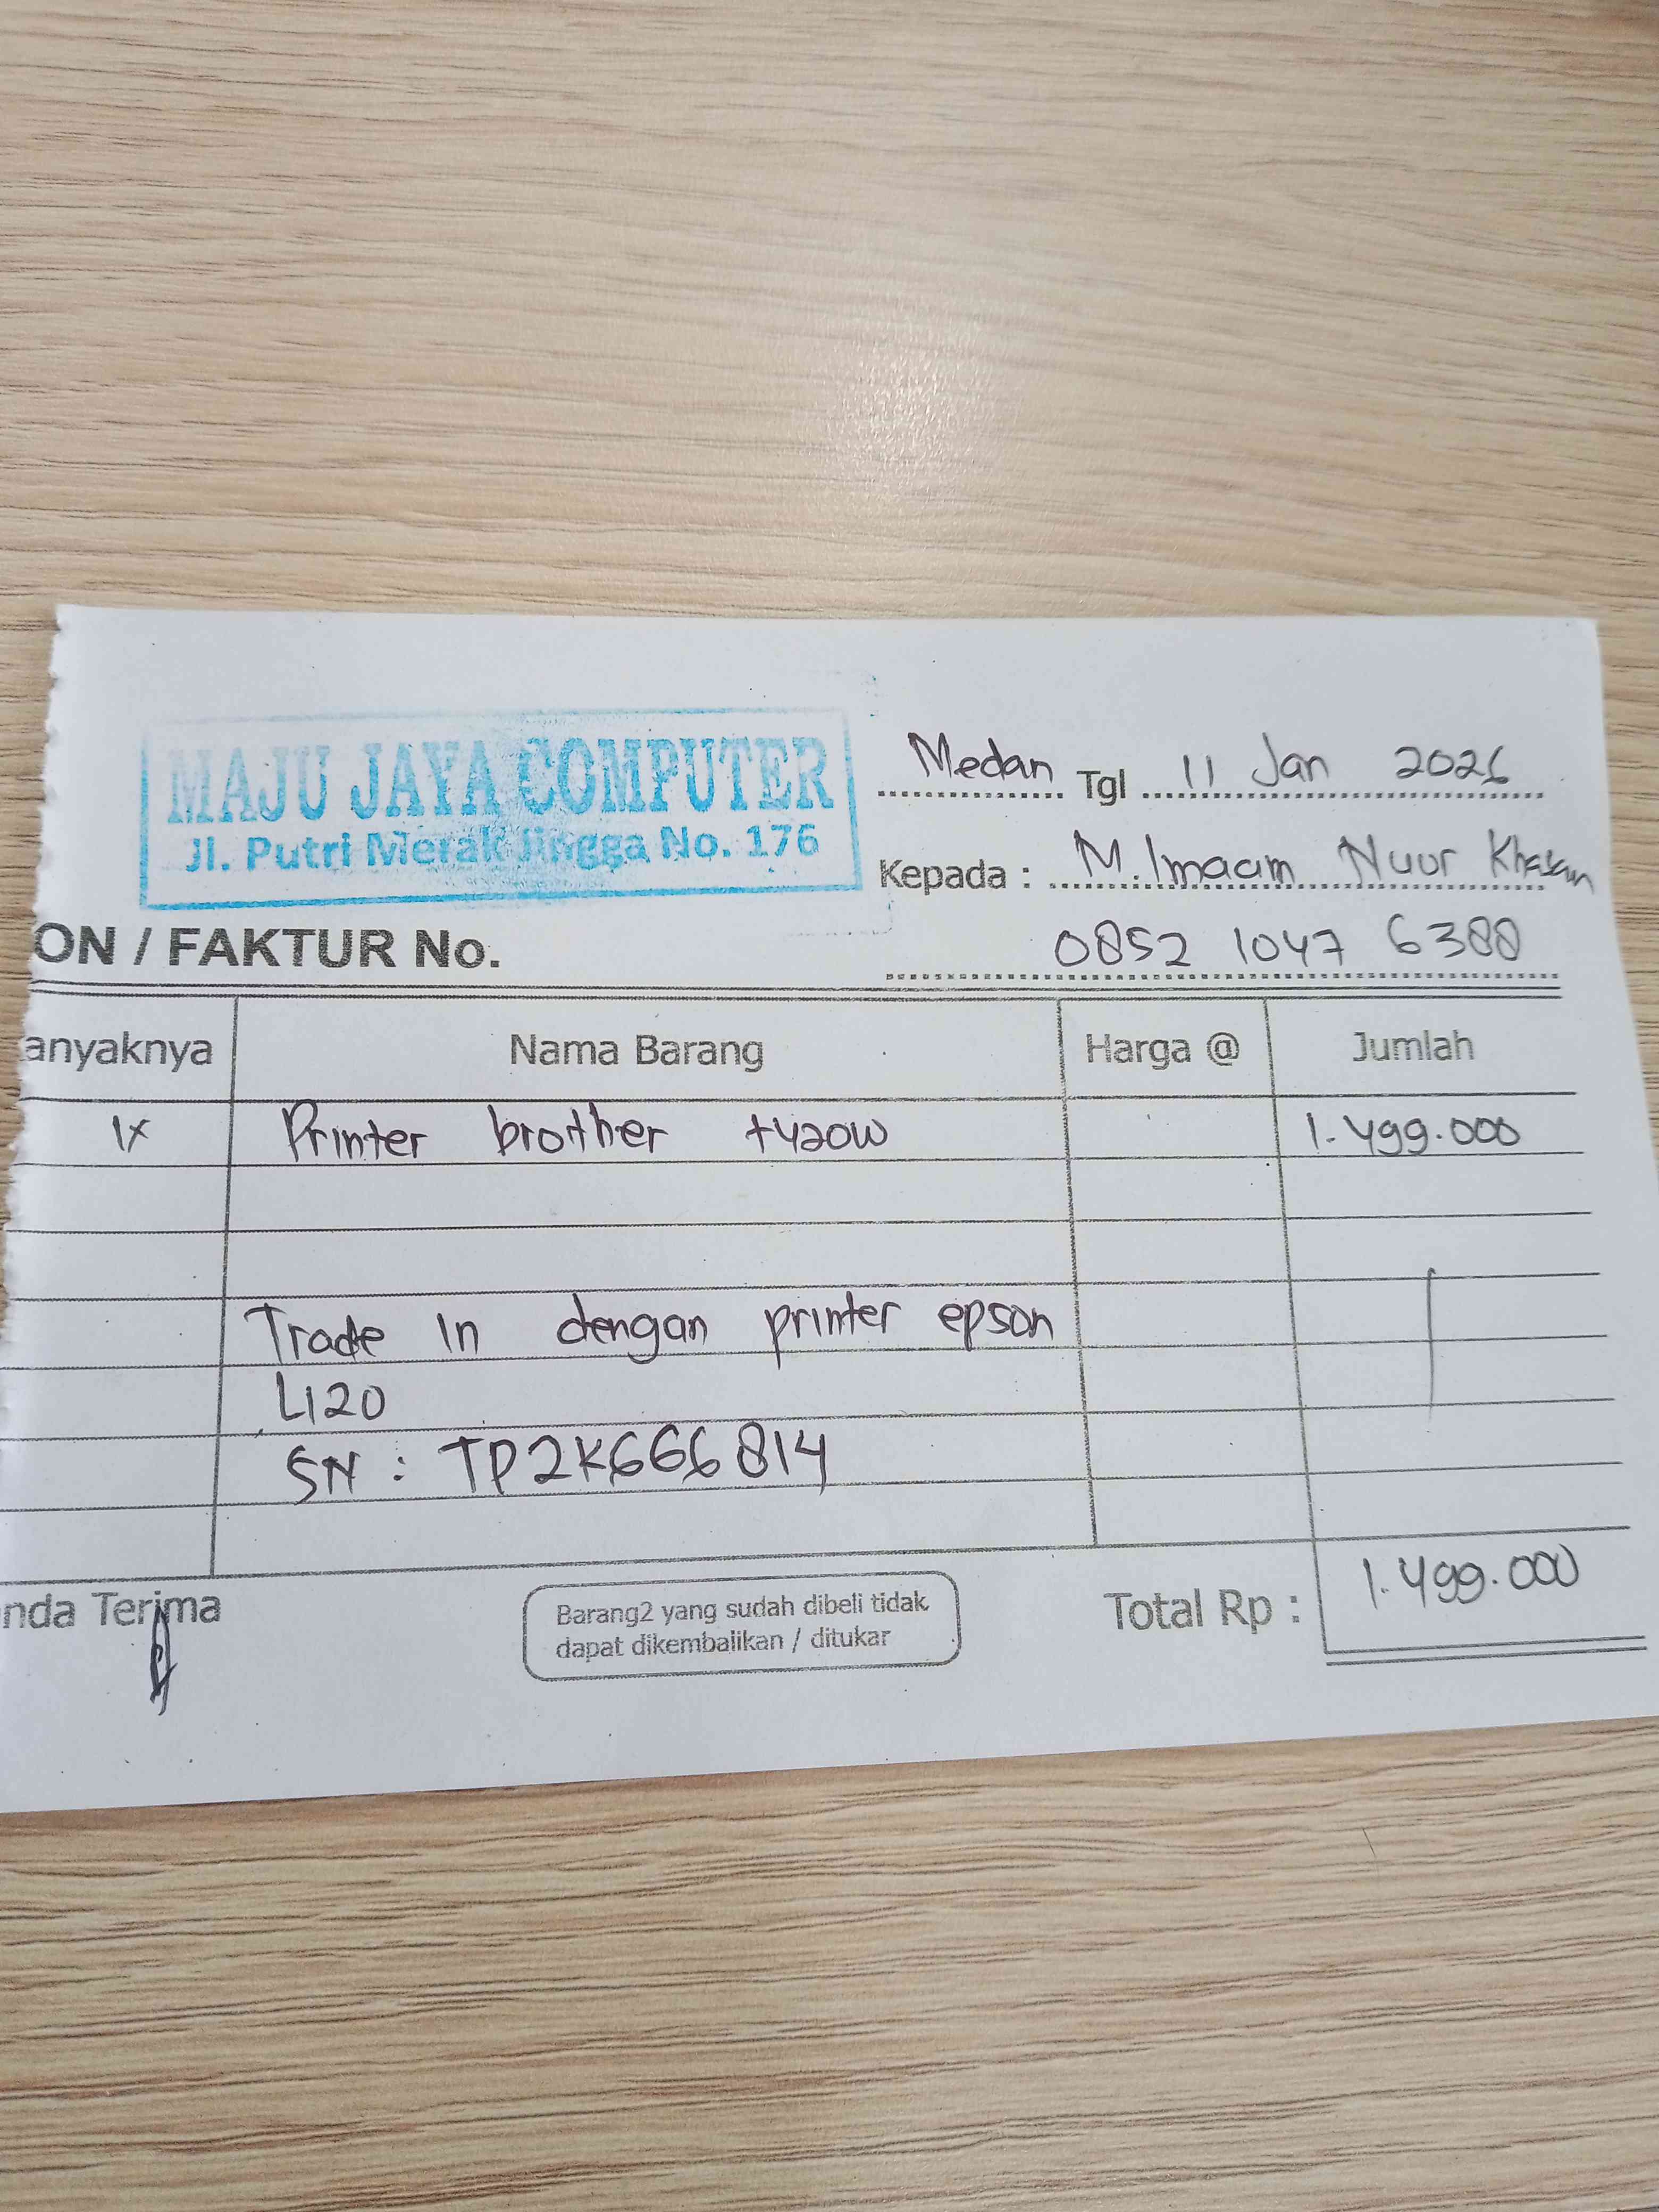 MAJU JAYA COMPUTER
Jl. Putri Merak Jingga No. 176
Medan Tgl 11 Jan 2026
Kepada : M. Imaam Nuur Khasan
0852 1047 6388
ON / FAKTUR No.
anyaknya Nama Barang Harga @ Jumlah
1x Printer brother t420w 1.499.000
Trade In dengan printer epson
L120
SN : TP2K666814
nda Terima
Barang2 yang sudah dibeli tidak
dapat dikembalikan / ditukar
Total Rp : 1.499.000